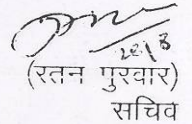 (रतन पुरवार)
सचिव